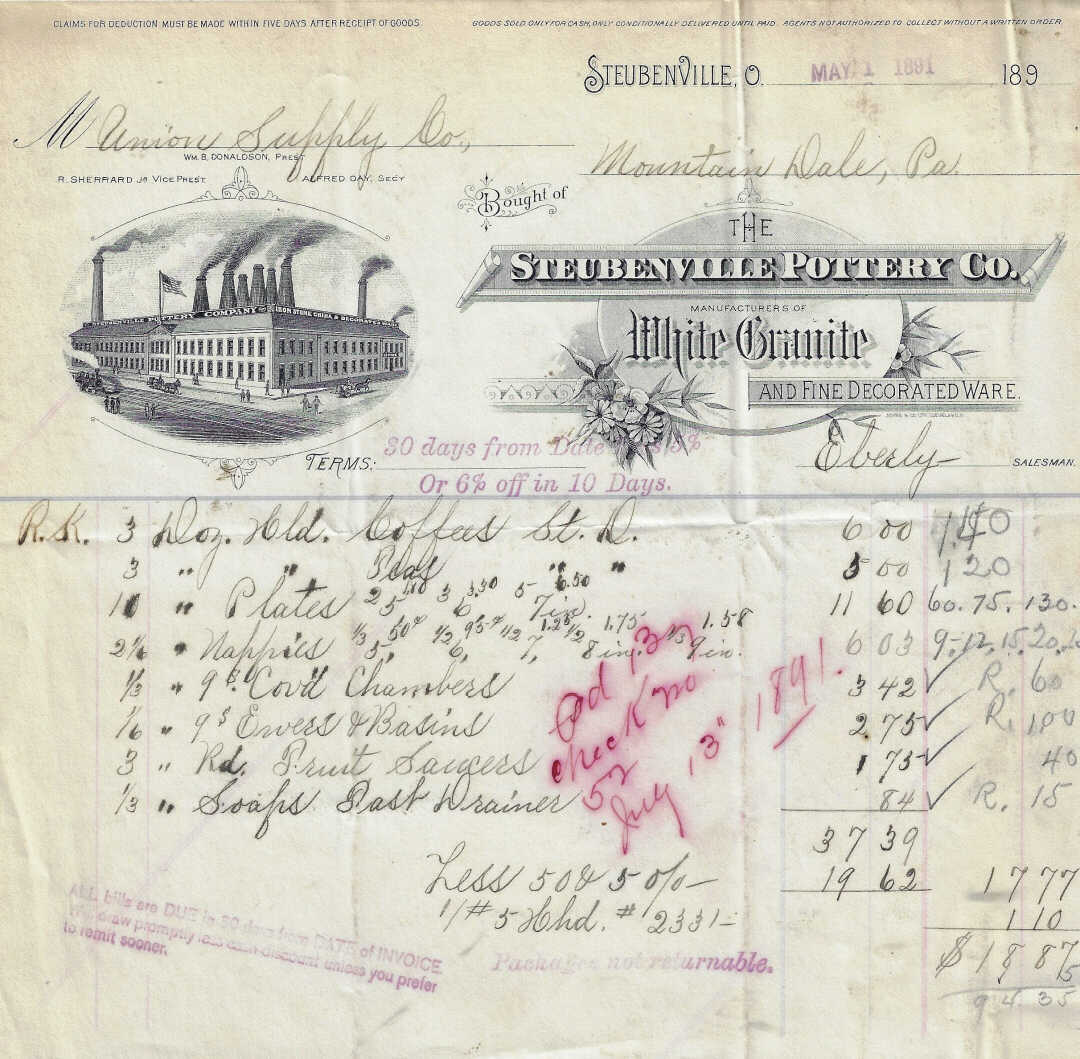 CLAIMS FOR DEDUCTION MUST BE MADE WITHIN FIVE DAYS AFTER RECEIPT OF GOODS.
GOODS SOLD ONLY FOR CASH, ONLY CONDITIONALLY DELIVERED UNTIL PAID. AGENTS NOT AUTHORIZED TO COLLECT WITHOUT A WRITTEN ORDER.
STEUBENVILLE, O. MAY 1 1891 189
M Union Supply Co.,
WM. B. DONALDSON, PREST
Mountain Dale, Pa.
R. SHERRARD JR VICE PREST. ALFRED DAY, SECY
Bought of
THE
STEUBENVILLE POTTERY CO.
STEUBENVILLE POTTERY COMPANY IRON STONE CHINA & DECORATED WARE
MANUFACTURERS OF
White Granite
AND FINE DECORATED WARE.
Eberly SALESMAN.
TERMS: 30 days from Date 5%
Or 6% off in 10 Days.
R.K. 3 Doz. Hld. Coffees St. D. 6 00 1.40
3 " " Teas " " 5 00 120
10 " Plates 2 5 1.10 3 6 3.30 5 7in. 6.50 11 60 60. 75. 130.
2 1/6 " Nappies 1/3 5, 50¢ 1/2 6, 95¢ 1/2 7, 1.25 1/2 8in. 1.75 1/3 9in. 1.58 6 03 9-12.15.20.
1/3 " 9s Cov'd Chambers 3 42 ✓ R. 60
1/6 " 9s Ewers & Basins 2 75 ✓ R. 100
3 " Rd. Fruit Saucers 1 75 ✓ 40
1/3 " Soaps Fast Drainer 84 ✓ R. 15
Pd
check no
52
July 13" 1891.
37 39
Less 50 & 5 0/0 19 62 17 77
1/# 5 Hhd. # 2331- 1 10
$ 18 87
94 35
ALL bills are DUE in 30 days from DATE of INVOICE
draw promptly less cash discount unless you prefer
to remit sooner.
Packages not returnable.